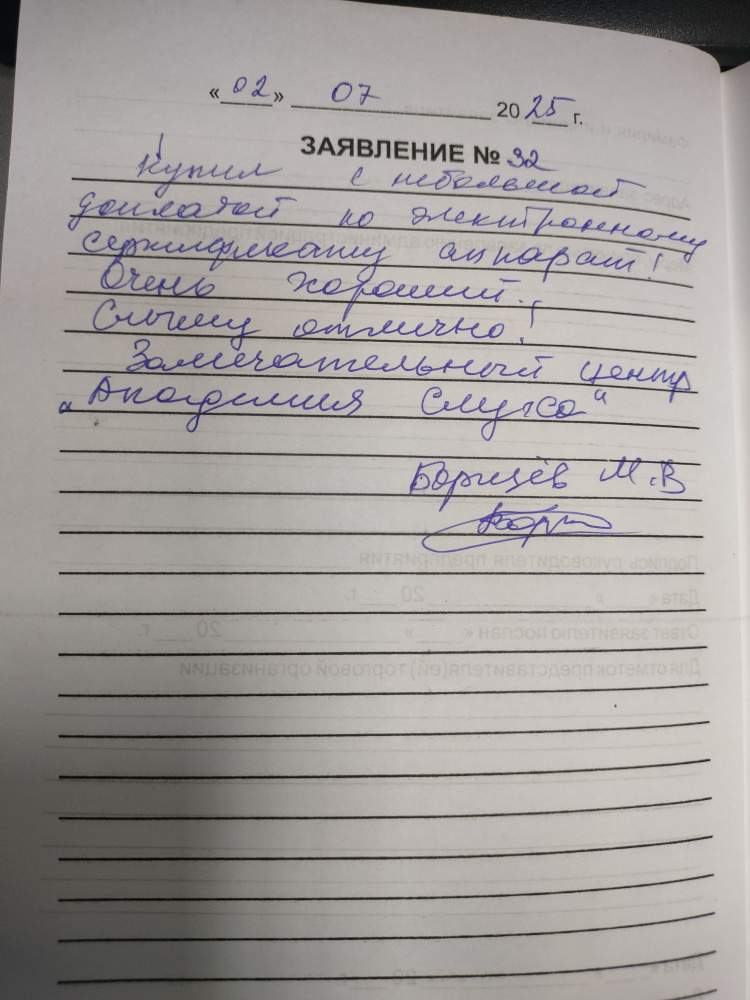 «02» 07 2025 г.
ЗАЯВЛЕНИЕ № 32
Купил с небольшой
доплатой по электронному
сертификату аппарат!
Очень хороший.
Слышу отлично!
Замечательный центр
„Академия Слуха“
Борщёв М.В
Подпись руководителя предприятия
Дата « » 20 г.
Ответ заявителю послан « » 20 г.
Для отметок представителя(ей) торговой организации